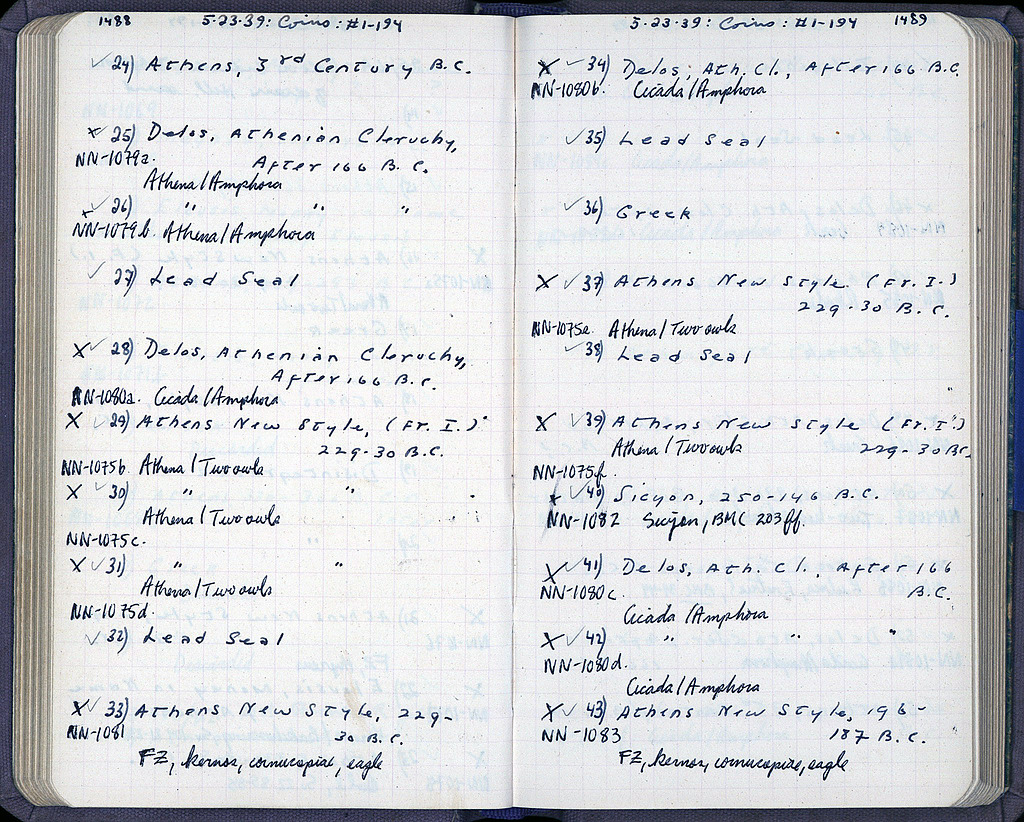 1488 5-23-39: Coins: #1-194
✓ 24) Athens, 3rd Century B.C.
X ✓ 25) Delos, Athenian Cleruchy,
NN-1079a After 166 B.C.
Athena/Amphora
X ✓ 26) " " "
NN-1079b Athena/Amphora
✓ 27) Lead Seal
X ✓ 28) Delos, Athenian Cleruchy,
After 166 B.C.
NN-1080a. Cicada/Amphora
X ✓ 29) Athens New Style, (Fr. I.)
229-30 B.C.
NN-1075b Athena/Two owls
X ✓ 30) " "
Athena/Two owls
NN-1075c.
X ✓ 31) " "
Athena/Two owls
NN-1075d.
✓ 32) Lead Seal
X ✓ 33) Athens New Style, 229-
NN-1081 30 B.C.
FZ, kernos, cornucopiae, eagle
5-23-39: Coins: #1-194 1489
X ✓ 34) Delos, Ath. Cl., After 166 B.C.
NN-1080b. Cicada/Amphora
✓ 35) Lead Seal
✓ 36) Greek
X ✓ 37) Athens New Style. (Fr. I.)
229-30 B.C.
NN-1075e. Athena/Two owls
✓ 38) Lead Seal
X ✓ 39) Athens New Style (Fr. I.)
Athena/Two owls 229-30 B.C.
NN-1075f.
X ✓ 40) Sicyon, 250-146 B.C.
NN-1082 Sicyon, BMC 203ff.
X ✓ 41) Delos, Ath. Cl., After 166
NN-1080c. B.C.
Cicada/Amphora
X ✓ 42) " " "
NN-1080d.
Cicada/Amphora
X ✓ 43) Athens New Style, 196-
NN-1083 187 B.C.
FZ, kernos, cornucopiae, eagle